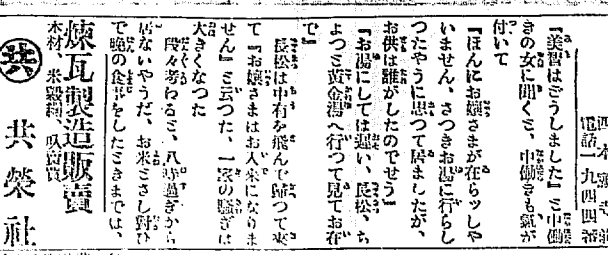 電話一九四四番
『美智はどうしました』と中働
きの女に聞くと、中働きも氣が
付いて
『ほんにお孃さまが在らツしや
いません、さつきお湯に行らし
つたやうに思つて居ましたが、
お供は誰がしたのでせう』
『お湯にしては遲い、長松、ち
よつと黄金湯へ行つて見てお在
で』
長松は中有を飛んで歸つて來
て『お孃さまはお入來になりま
せん』と云つた、一家の騷ぎは
大きくなつた
段々考わると、八時過ぎから
居ないやうだ、お米とさし對ひ
で晩の食事をしたときまでは、
煉瓦製造販賣
木材、米穀類、賣買
共 共榮社